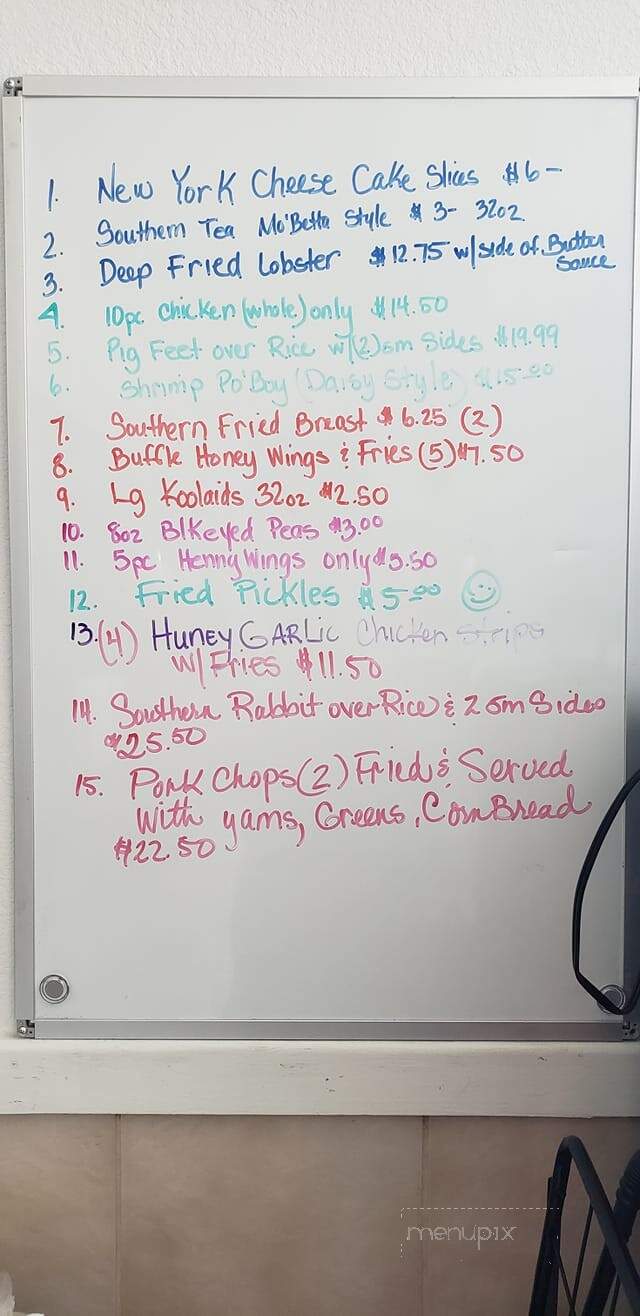 1. New York Cheese Cake Slices $6-
2. Southern Tea Mo'Betta Style $3- 32oz
3. Deep Fried Lobster $12.75 w/side of Butter
Sauce
4. 10pc Chicken (whole) only $14.50
5. Pig Feet over Rice w/(2)sm Sides $19.99
6. Shrimp Po'Boy (Daisy Style) $15.00
7. Southern Fried Breast $6.25 (2)
8. Buffle Honey Wings & Fries (5) $7.50
9. Lg Koolaids 32oz $2.50
10. 8oz BlKeyed Peas $3.00
11. 5pc Henny Wings only $5.50
12. Fried Pickles $5.00
13. (4) Huney GARLic Chicken Strips
W/ Fries $11.50
14. Southern Rabbit over Rice & 2 sm Sides
$25.50
15. Pork Chops (2) Fried & Served
With yams, Greens, CornBread
$22.50
menupix